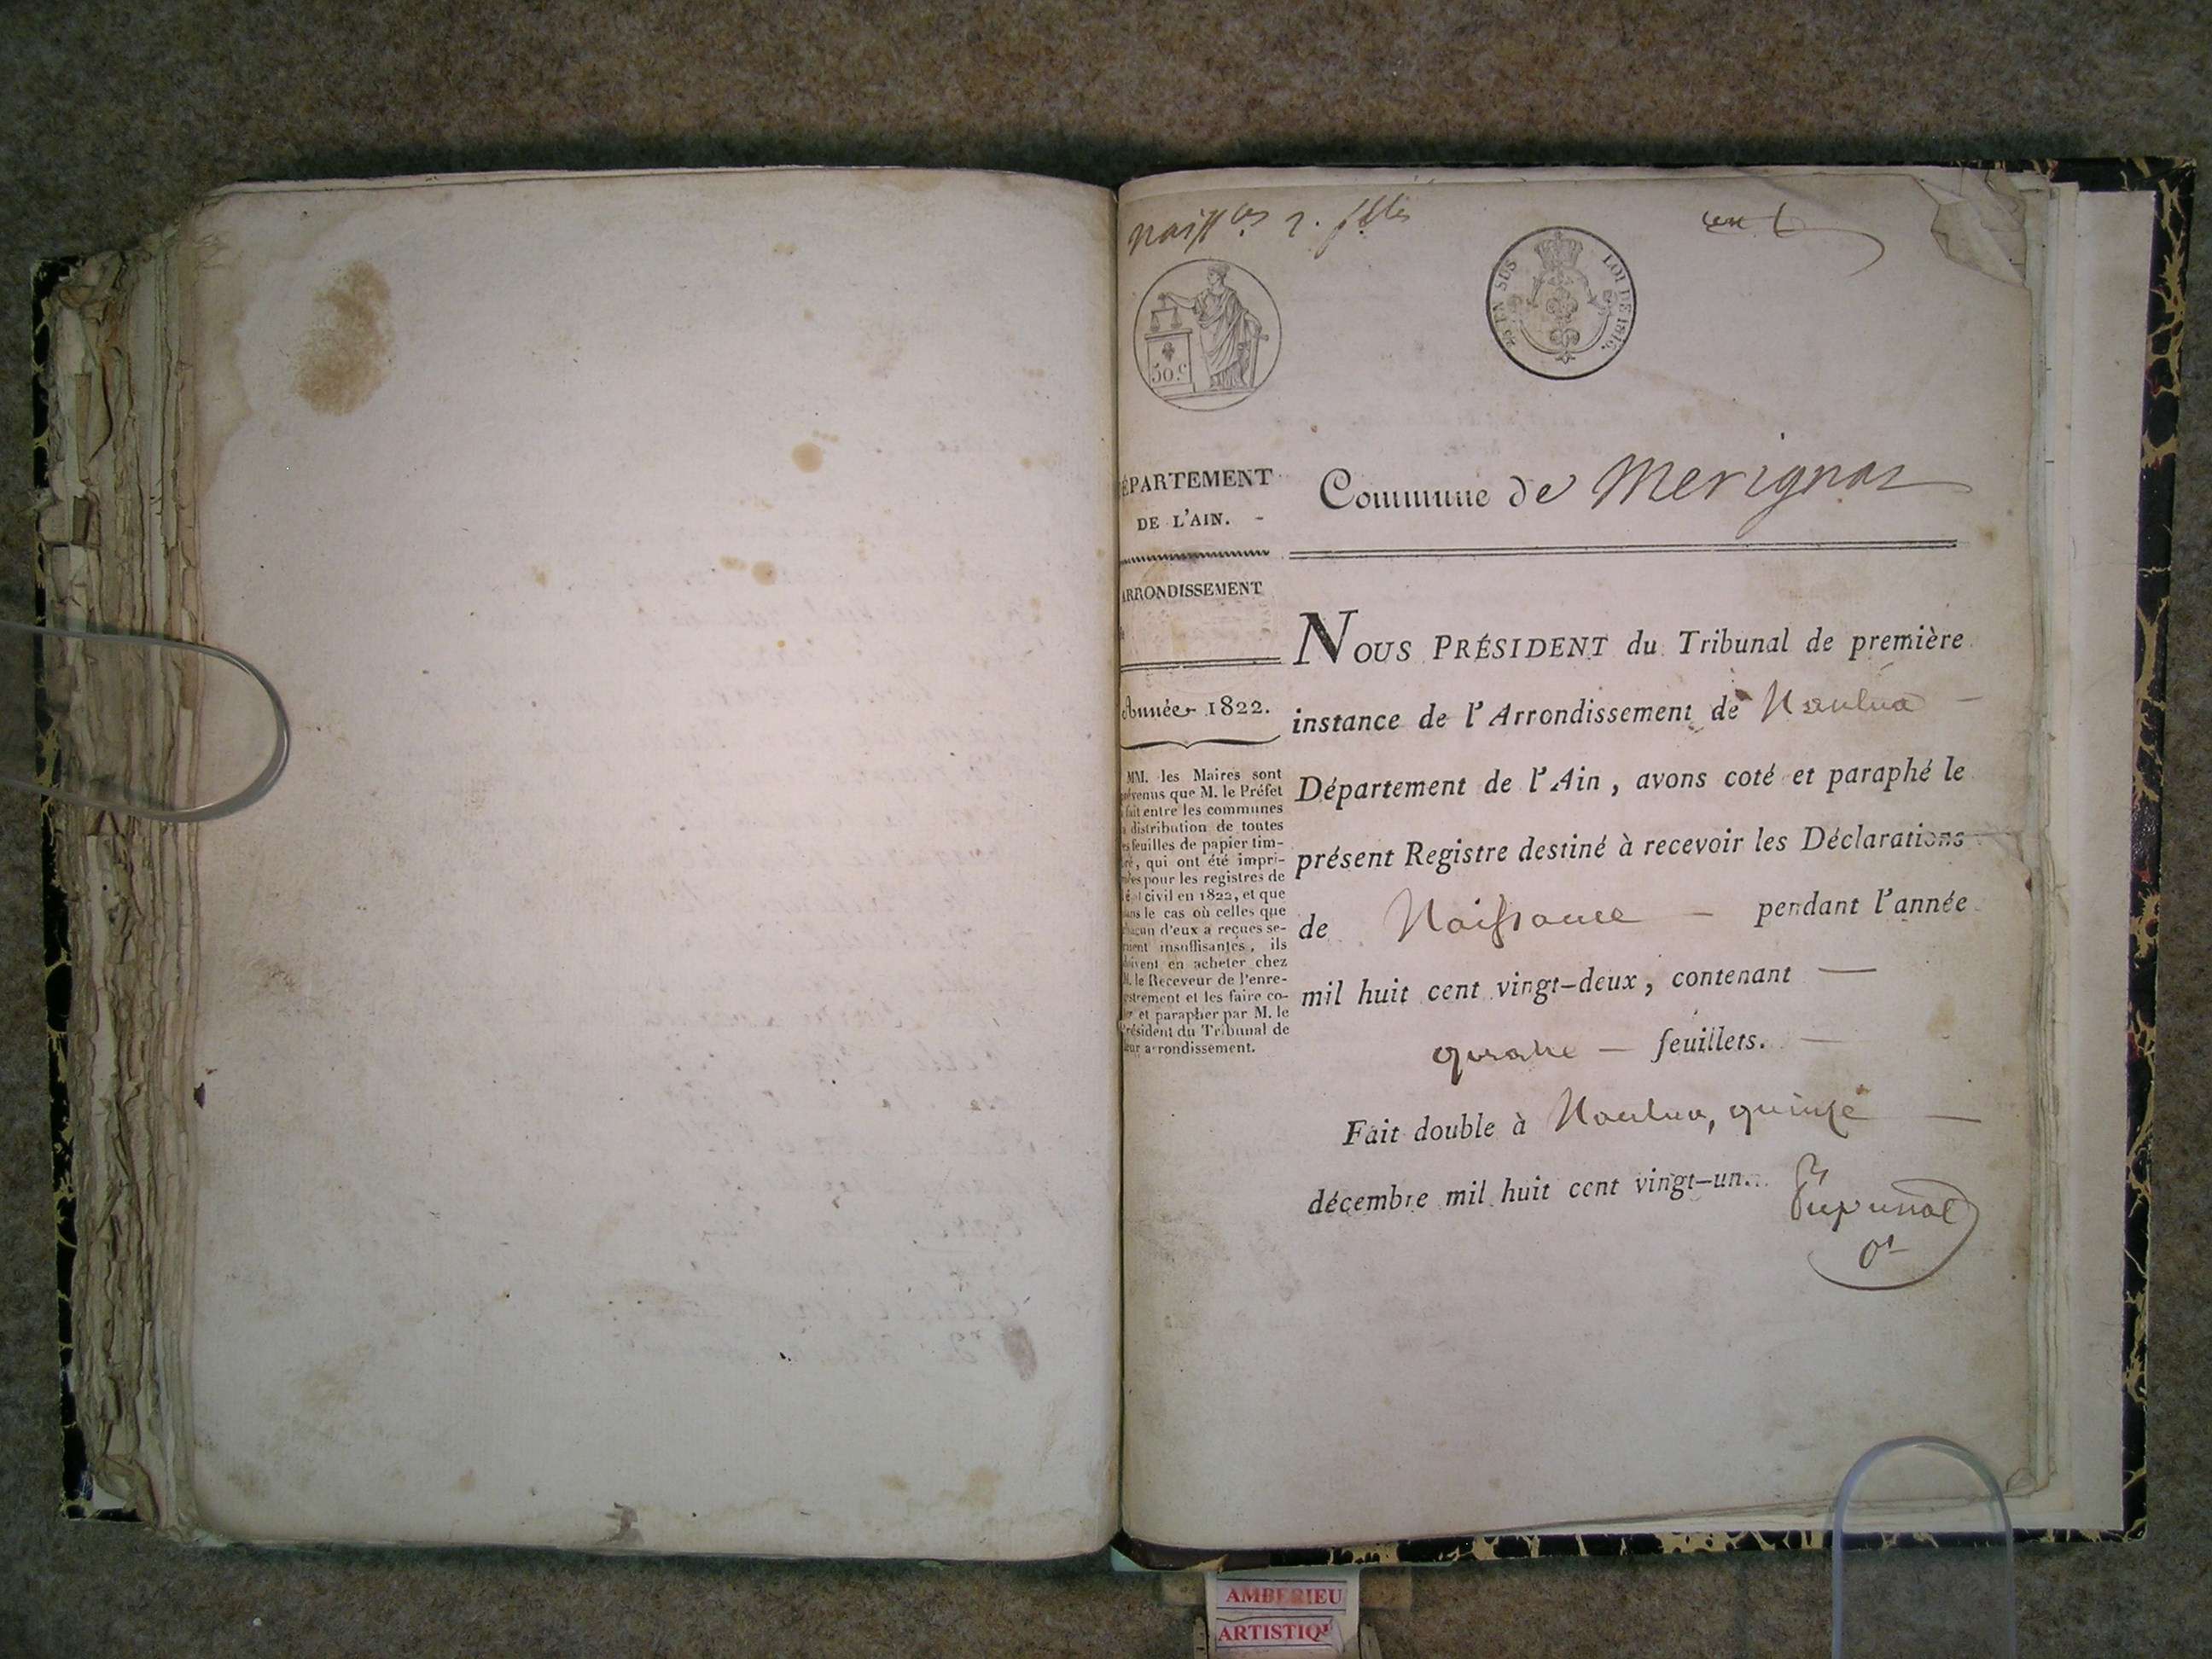 naiss.ces 2. f.lles
un
50.c
EN SUS LOI DE 1816.
ÉPARTEMENT
DE L'AIN.
ARRONDISSEMENT
Année 1822.
MM. les Maires sont
prévenus que M. le Préfet
a fait entre les communes
la distribution de toutes
les feuilles de papier tim-
bré, qui ont été impri-
mées pour les registres de
l'état civil en 1822, et que
dans le cas où celles que
chacun d'eux a reçues se-
raient insuffisantes, ils
doivent en acheter chez
M. le Receveur de l'enre-
gistrement et les faire co-
ter et parapher par M. le
Président du Tribunal de
leur arrondissement.
Commune de Merignas
NOUS PRÉSIDENT du Tribunal de première
instance de l'Arrondissement de Nantua
Département de l'Ain, avons coté et paraphé le
présent Registre destiné à recevoir les Déclarations
de Naissance pendant l'année
mil huit cent vingt-deux, contenant
feuillets.
Fait double à Nantua, quinze
décembre mil huit cent vingt-un.
AMBERIEU
ARTISTIQU